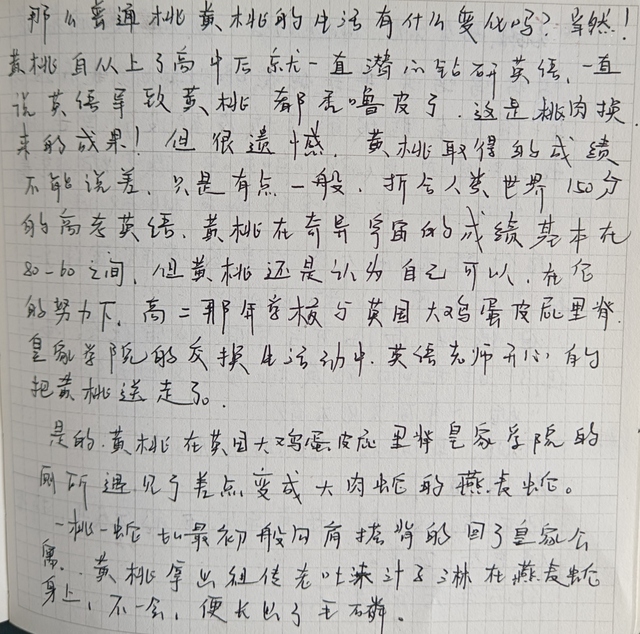 那么普通桃黄桃的生活有什么变化吗？当然！
黄桃自从上了高中后就一直潜心钻研英语，一直
说英语导致黄桃都秃噜皮了，这是桃肉换
来的成果！但很遗憾，黄桃取得的成绩
不能说差，只是有点一般，折合人类世界150分
的高考英语，黄桃在奇异宇宙的成绩基本在
80-60之间，但黄桃还是认为自己可以，在它
的努力下，高二那年学校与英国大鸡蛋皮屁里脊
皇家学院的交换生活动中，英语老师开心的
把黄桃送走了。
是的，黄桃在英国大鸡蛋皮屁里脊皇家学院的
厕所遇见了差点变成大肉蛇的燕表蛇。
一桃一蛇如最初般勾肩搭背的回了皇家公
寓，黄桃拿出祖传老吐沫汁子淋在燕表蛇
身上，不一会，便长出了毛鳞。